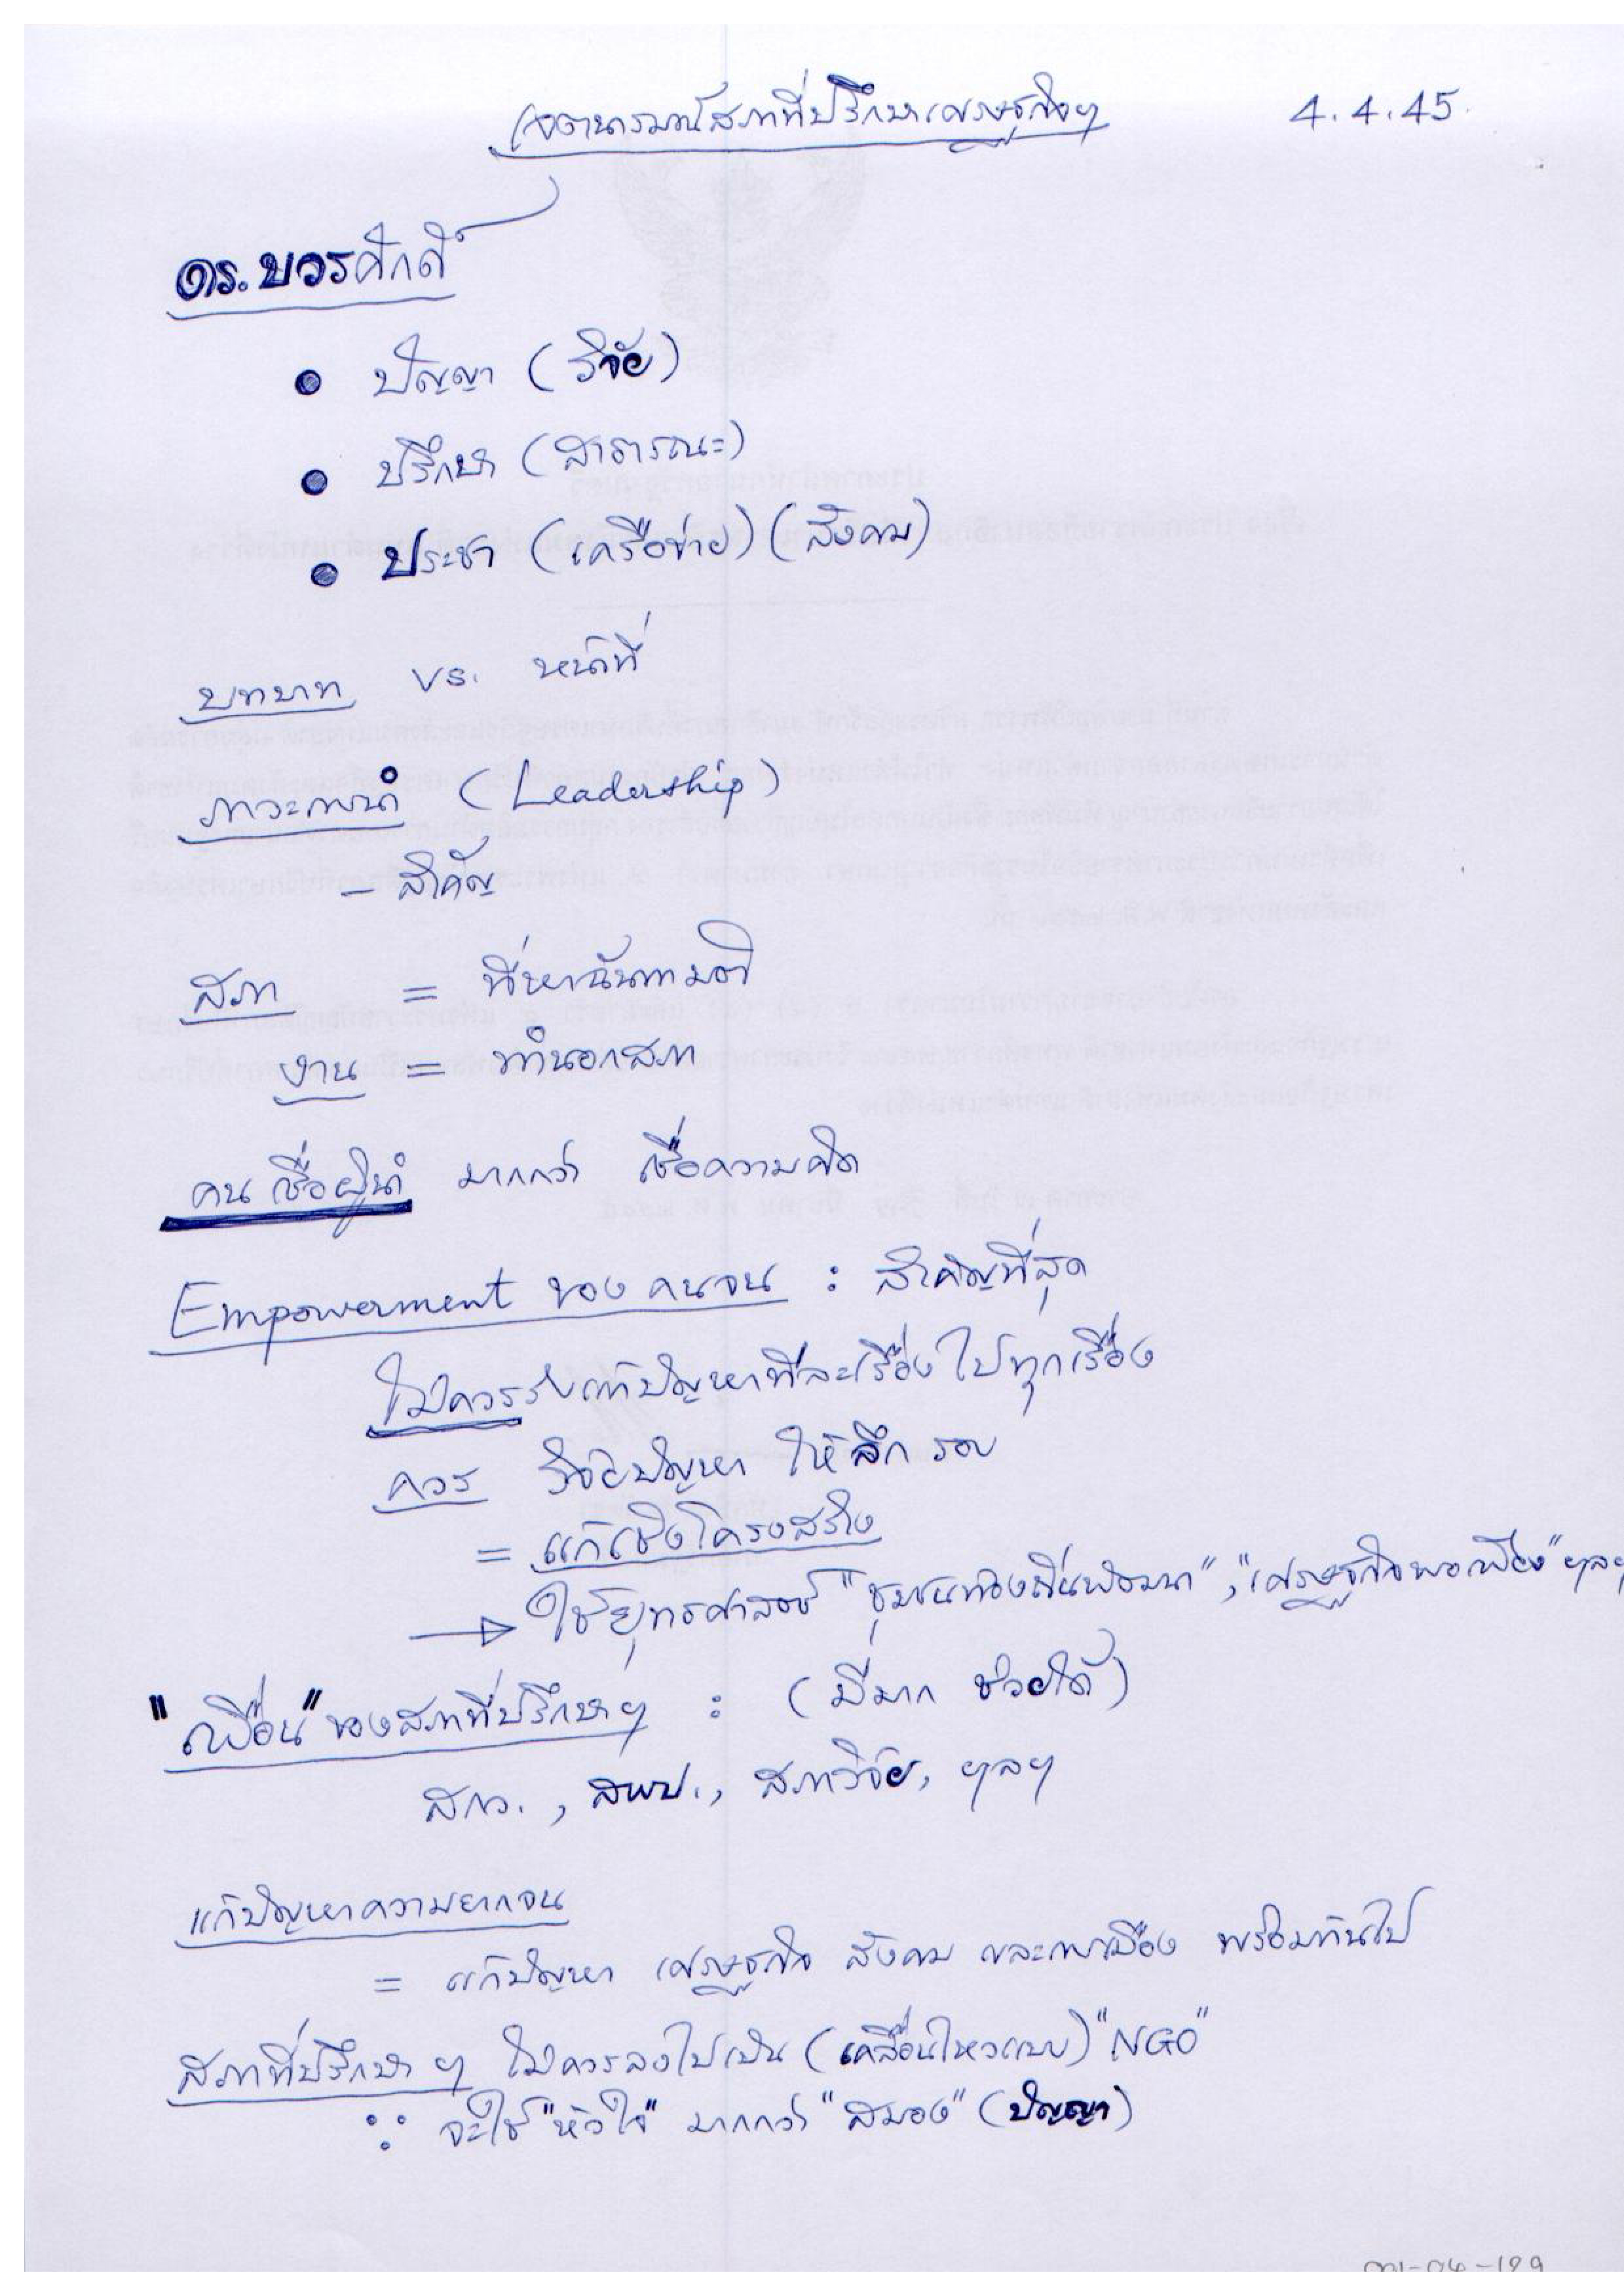 เจตนารมณ์สภาที่ปรึกษาเศรษฐกิจฯ 4.4.45
ดร.บวรศักดิ์
• ปัญญา (วิจัย)
• ปรึกษา (สาธารณะ)
• ประชา (เครือข่าย) (สังคม)
บทบาท vs. หน้าที่
ภาวะการนำ (Leadership)
- สำคัญ
สภา = ที่หาฉันทามติ
งาน = ทำนอกสภา
คนเชื่อผู้นำ มากกว่า เชื่อความคิด
Empowerment ของ คนจน : สำคัญที่สุด
ไม่ควรรับแก้ปัญหาทีละเรื่องไปทุกเรื่อง
ควร วิจัยปัญหา ให้ลึก รอบ
= แก้เชิงโครงสร้าง
→ ใช้ยุทธศาสตร์ "ชุมชนท้องถิ่นพัฒนา", "เศรษฐกิจพอเพียง" ฯลฯ
"เพื่อน" ของสภาที่ปรึกษาฯ : (มีมาก ช่วยได้)
สกว., สพป., สภาวิจัย, ฯลฯ
แก้ปัญหาความยากจน
= แก้ปัญหา เศรษฐกิจ สังคม และการเมือง พร้อมกันไป
สภาที่ปรึกษาฯ ไม่ควรลงไปเป็น (เคลื่อนไหวแบบ) "NGO"
∵ จะใช้ "หัวใจ" มากกว่า "สมอง" (ปัญญา)